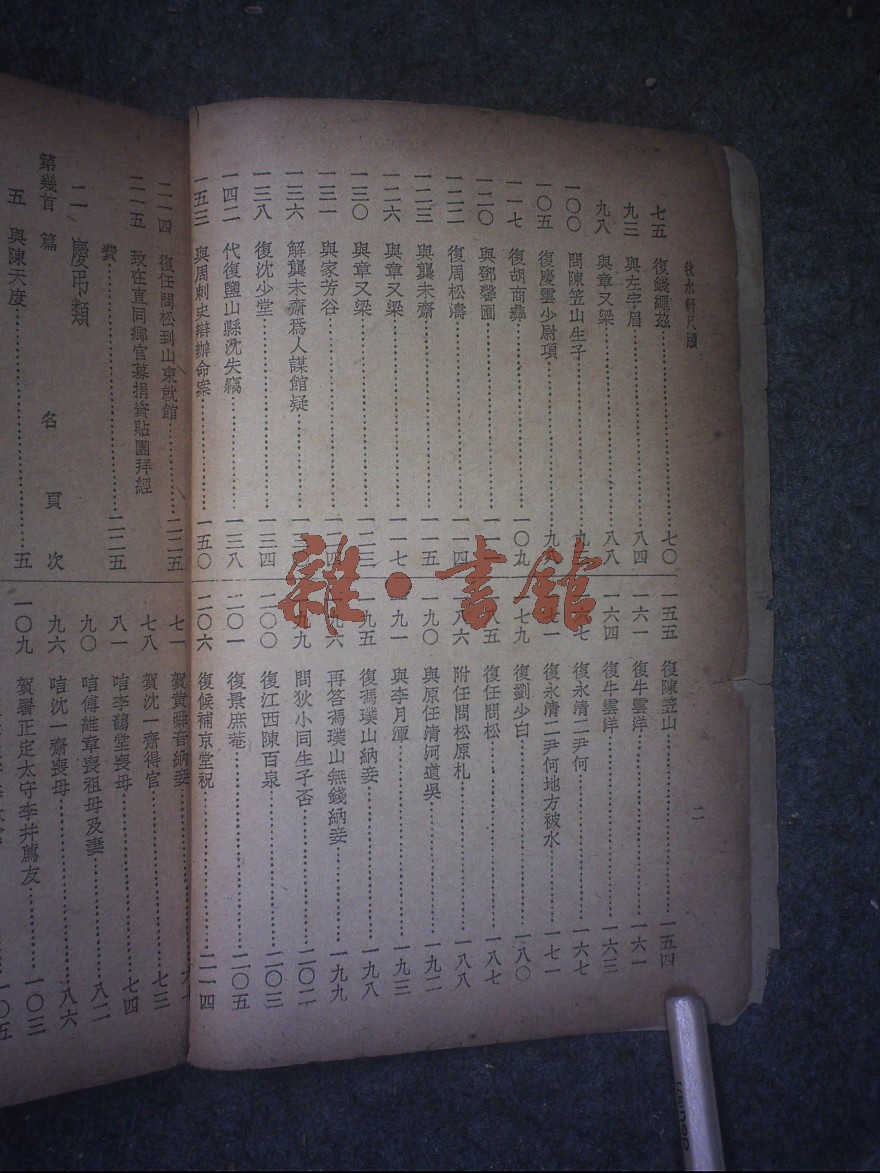 秋水軒尺牘
二
七五 復錢繩茲……七〇
九三 與左宇眉……八四
九八 與章又梁……八八
一〇〇 問陳笠山生子……九
一〇五 復慶雲少尉項……九八
一一七 復胡商彝……一〇九
一二〇 與鄧馨圃……一一
一二二 復周松濤……一一四
一二三 與龔未齋……一一五
一二六 與章又梁……一一七
一三〇 與章又梁……一二三
一三一 與家芳谷……一二四
一三六 解龔未齋爲人謀館疑……一
一三八 復沈少堂……一三四
一四二 代復鹽山縣沈失竊……一三八
一五三 與周刺史辯辦命案……一五〇
一五五 復陳笠山……一五四
一六一 復牛雲洋……一六一
一六四 復牛雲洋……一六三
六七 復永清二尹何……一六七
七一 復永清二尹何地方被水……一七一
七九 復劉少白……一八〇
八五 復任問松……一八七
八六 附任問松原札……一八八
一九〇 與原任清河道吳……一九二
一九一 與李月潭……一九三
一九五 復馮璞山納妾……一九八
九六 再答馮璞山無錢納妾……一九九
九九 問狄小同生子否……二〇二
二〇〇 復江西陳百泉……二〇三
二〇一 復景庶菴……二〇五
二〇六 復候補京堂祝……二一四
二一四 復任問松到山東就館……二二五
二一五 致在直同鄉官募捐資貼團拜經
費……二二五
二 慶弔類
第幾首 篇 名 頁 次
五 與陳天度……五
七一 賀黃舜音納妾……六七
七八 賀沈一齋得官……七三
八一 唁李藹堂喪母……七四
九〇 唁傅維章喪祖母及妻……八二
九六 唁沈一齋喪母……八六
一〇九 賀署正定太守李井薦友……一〇三
一〇五
雜·書館